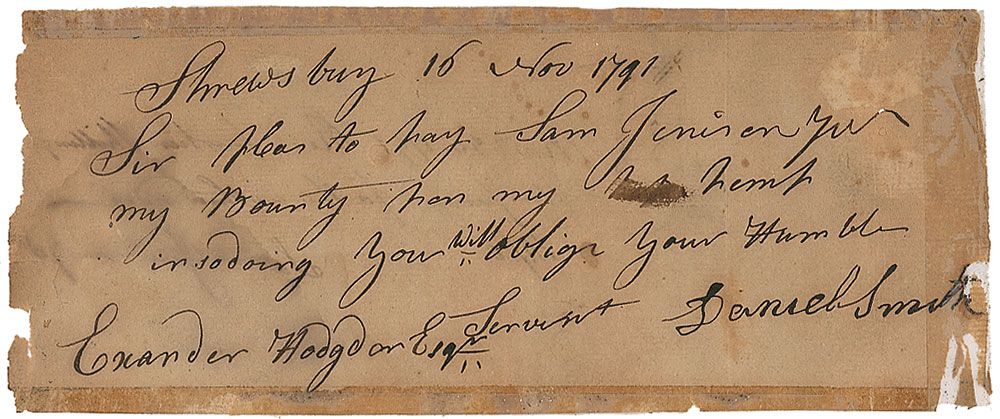 Shrewsbury 16 Nov 1791
Sir pleas to pay Sam Jenison Jur
my Bounty hon my hemp
in sodoing You Will oblige Your Humble
Servent Daniel Smith
Exander Hodgdon Esqr